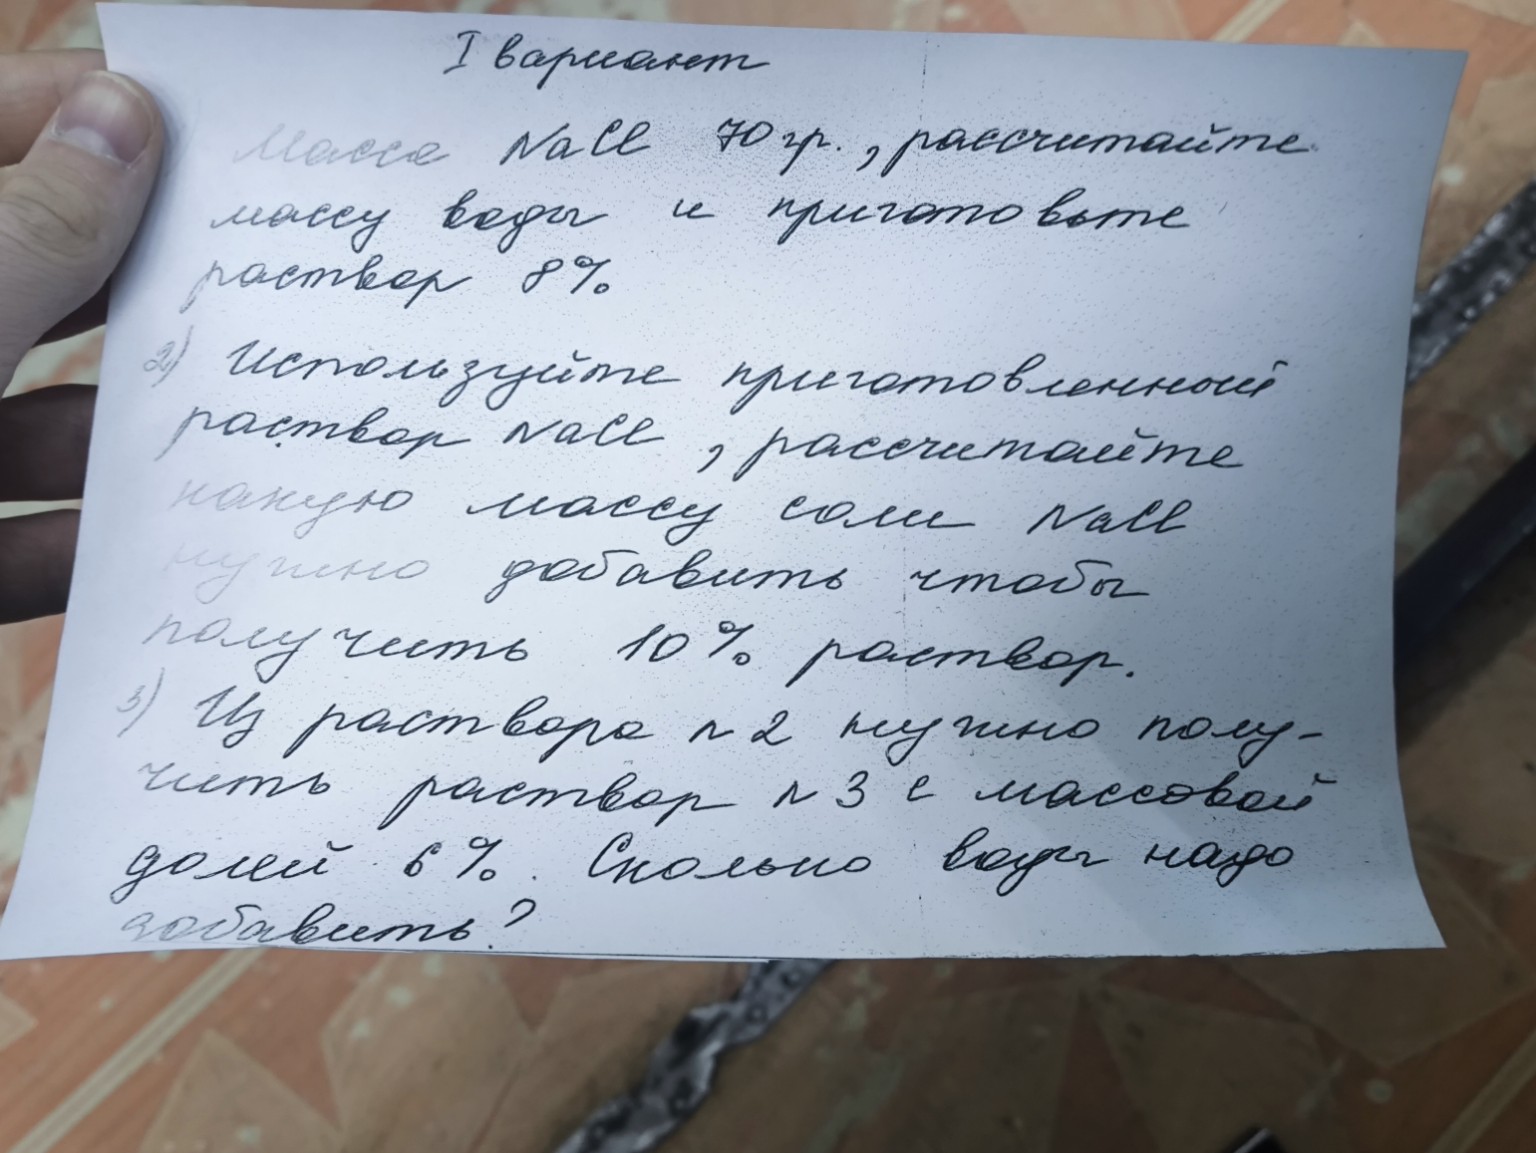 I вариант
Масса NaCl 70 гр., рассчитайте
массу воды и приготовьте
раствор 8%
2) Используйте приготовленный
раствор NaCl, рассчитайте
какую массу соли NaCl
нужно добавить чтобы
получить 10% раствор.
3) Из раствора n2 нужно полу-
чить раствор n3 с массовой
долей 6%. Сколько воды надо
добавить?